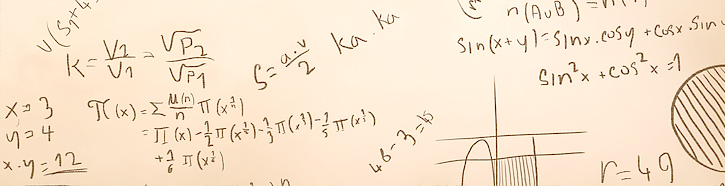 K = V₂/V₁ = √P₂/√P₁
S = a.v/2
ka . ka
n(A∪B) =
Sin(x+y) = Sinx.cosy + cosx.Sin
Sin²x + cos²x = 1
x = 3
y = 4
x.y = 12
π(x) = Σ μ(n)/n Π(x^1/n)
= Π(x) - 1/2 Π(x^1/2) - 1/3 Π(x^1/3) - 1/5 Π(x^1/5)
+ 1/6 Π(x^1/6)
r = 49